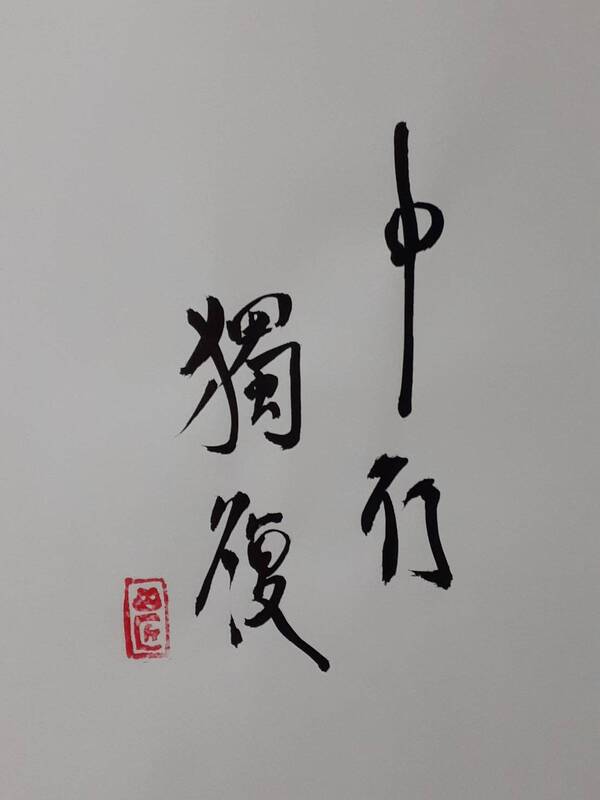 中行
獨復